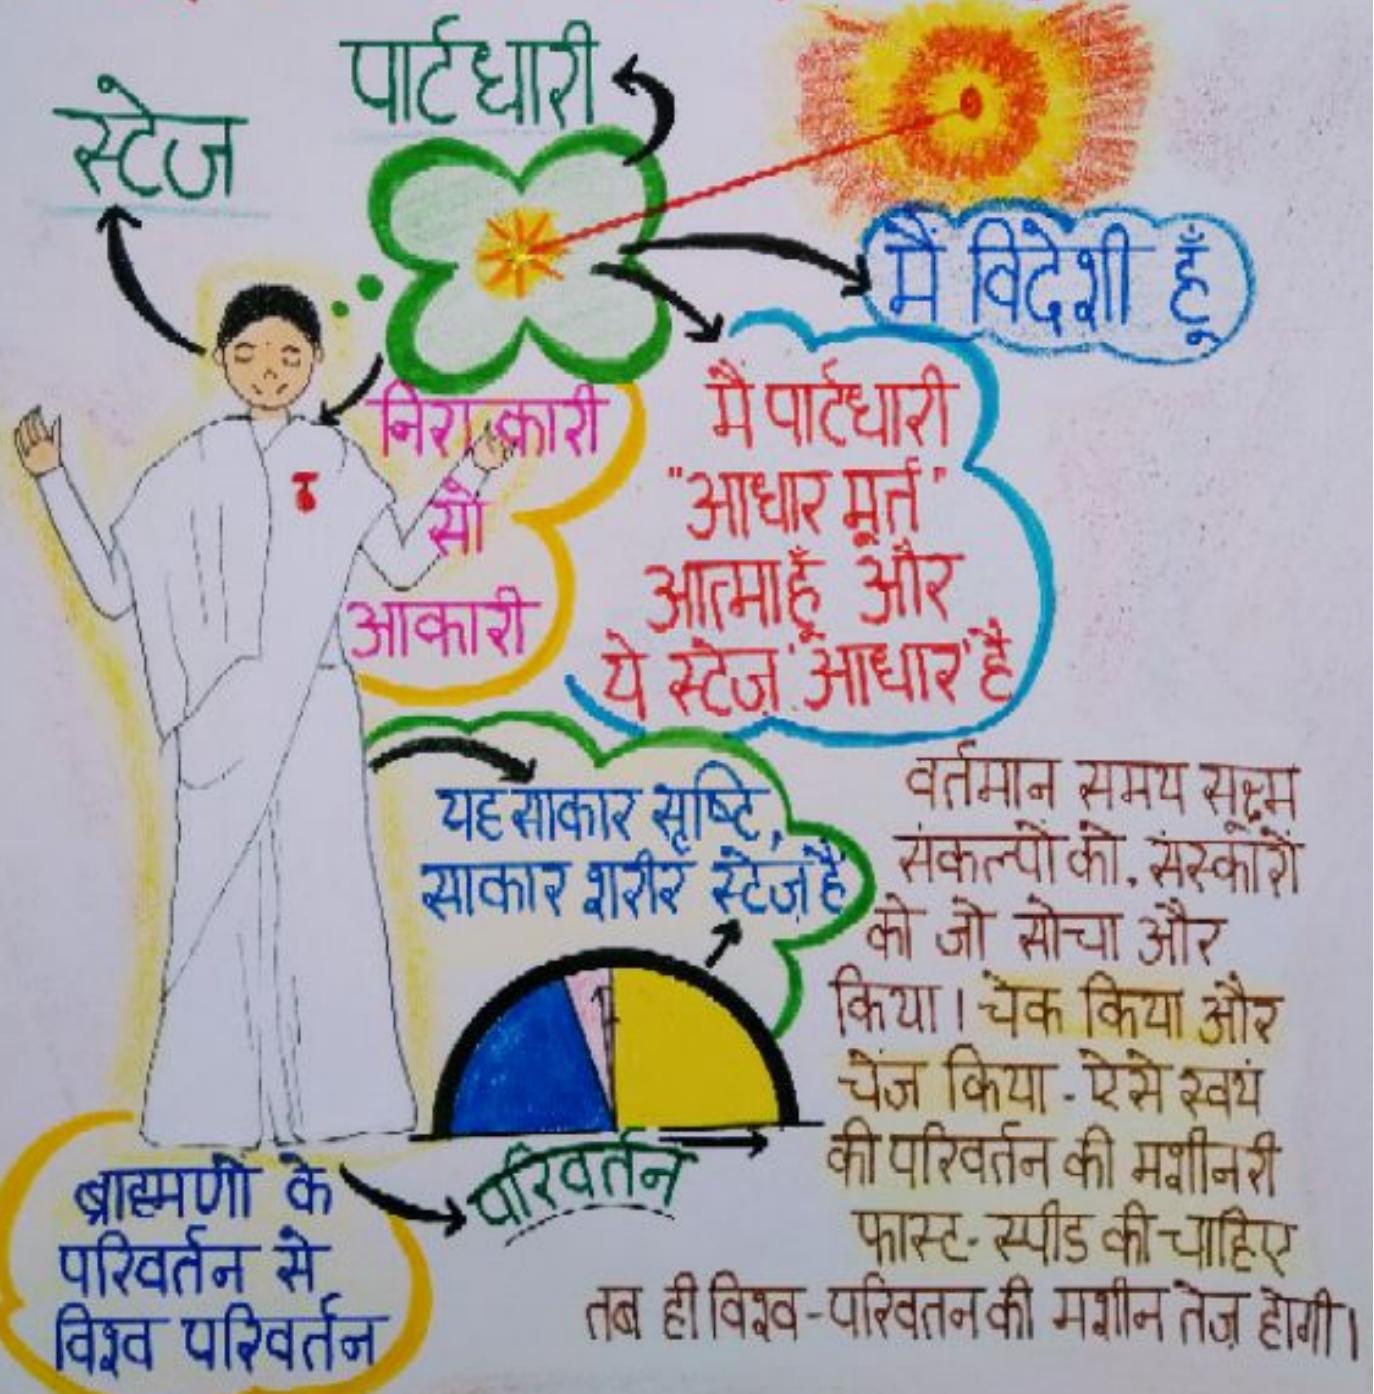 पार्टधारी
स्टेज
मैं विदेशी हूँ
निराकारी
सो
आकारी
मैं पार्टधारी
"आधार मूर्त"
आत्मा हूँ और
ये स्टेज़ 'आधार' है
यह साकार सृष्टि,
साकार शरीर स्टेज़ है
वर्तमान समय सूक्ष्म
संकल्पों को, संस्कारों
को जो सोचा और
किया। चेक किया और
चेंज किया - ऐसे स्वयं
की परिवर्तन की मशीनरी
फास्ट - स्पीड की चाहिए
तब ही विश्व - परिवतन की मशीन तेज़ होगी।
परिवर्तन
ब्राह्मणों के
परिवर्तन से
विश्व परिवर्तन